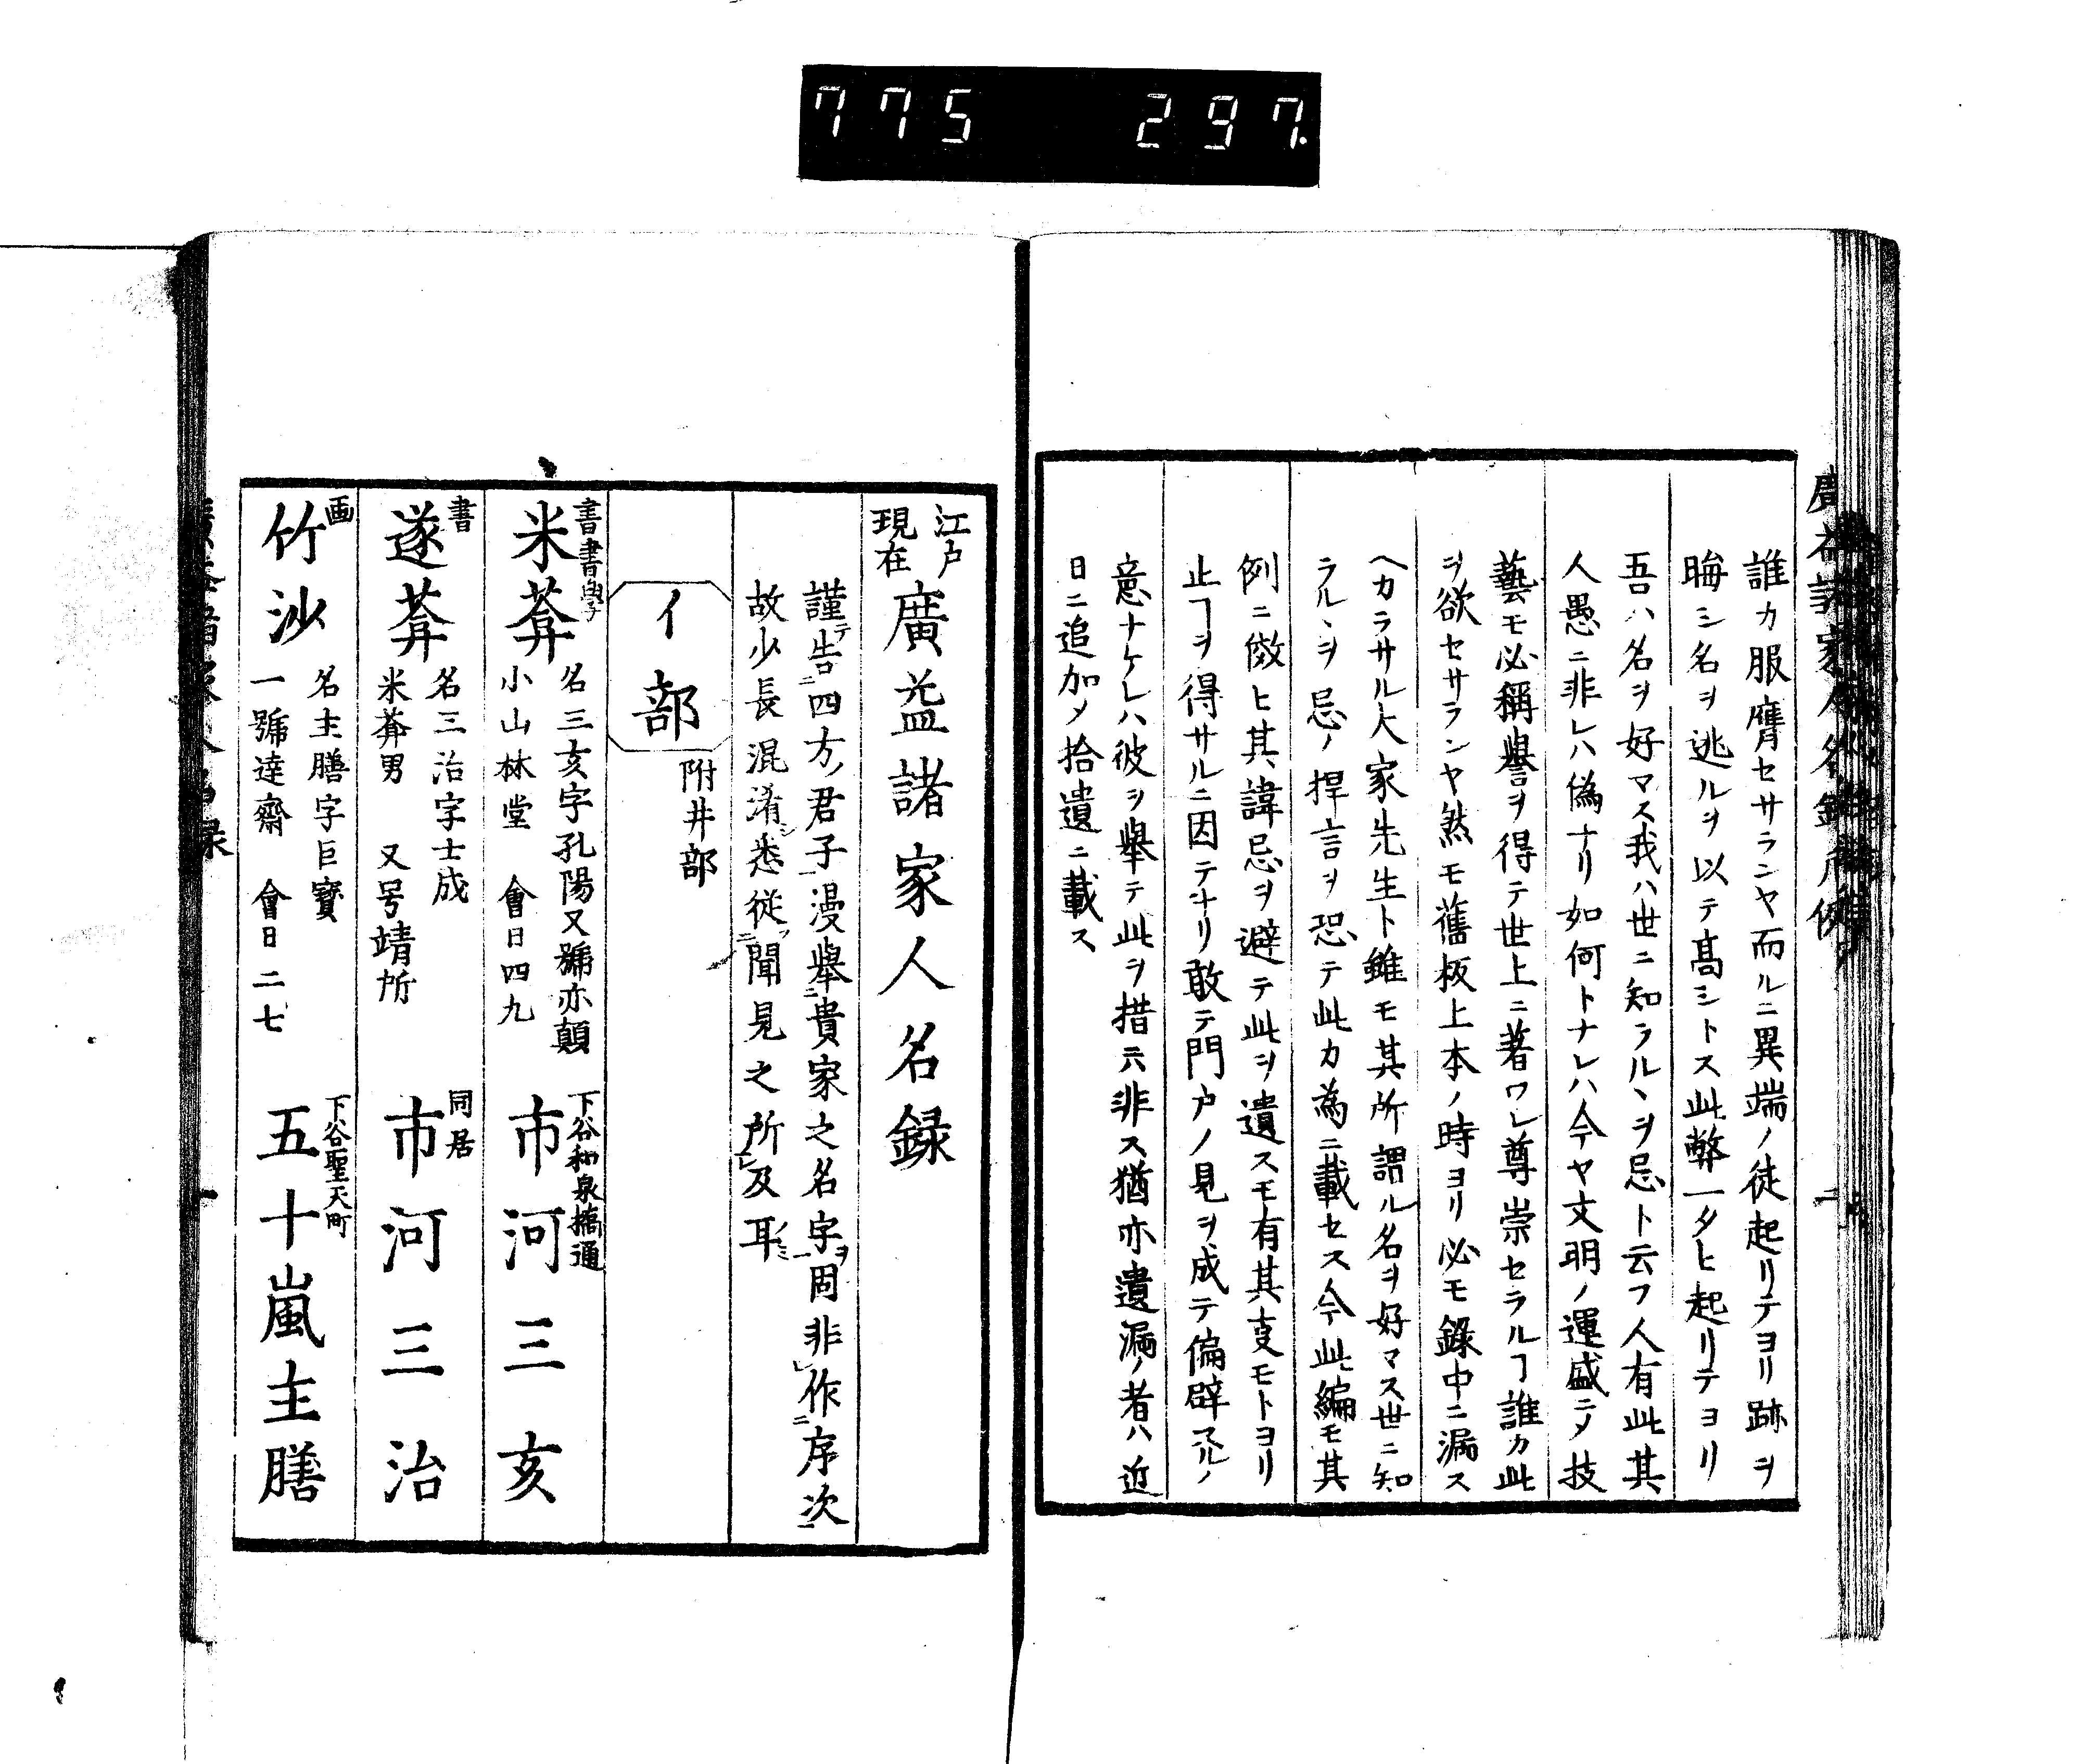 775 297.
誰カ服膺セサランヤ而ルニ異端ノ徒起リテヨリ跡ヲ
晦シ名ヲ逃ルヲ以テ高シトス此弊一タヒ起リテヨリ
吾ハ名ヲ好マス我ハ世ニ知ラルヽヲ忌ト云フ人有此其
人愚ニ非レハ偽ナリ如何トナレハ今ヤ文明ノ運盛ニノ技
藝モ必稱譽ヲ得テ世上ニ著ワレ尊崇セラルヿ誰カ此
ヲ欲セサランヤ然モ舊板上本ノ時ヨリ必モ録中ニ漏ス
ヘカラサル大家先生ト雖モ其所謂ル名ヲ好マス世ニ知
ラルヽヲ忌ノ捍言ヲ恐テ此カ為ニ載セス今此編モ其
例ニ傚ヒ其諱忌ヲ避テ此ヲ遺スモ有其叓モトヨリ
止ヿヲ得サルニ因テナリ敢テ門戸ノ見ヲ成テ偏辟スルノ
意ナケレハ彼ヲ舉テ此ヲ措ニ非ス猶亦遺漏ノ者ハ近
日ニ追加ノ拾遺ニ載ス
江戸現在 廣益諸家人名録
謹テ告ニ四方ノ君子一漫舉ニ貴家之名字ヲ一固非レ作ニ序次一
故少長混淆シ悉從ニ聞見之所レ及耳
イ部 附井部
書書學 米葊 名三亥字孔陽又號亦顛 小山林堂 會日四九 下谷和泉橋通 市河三亥
書 遂葊 名三治字士成 米葊男 又号靖所 同居 市河三治
画 竹沙 名主膳字巨寶 一號達齋 會日二七 下谷聖天町 五十嵐主膳